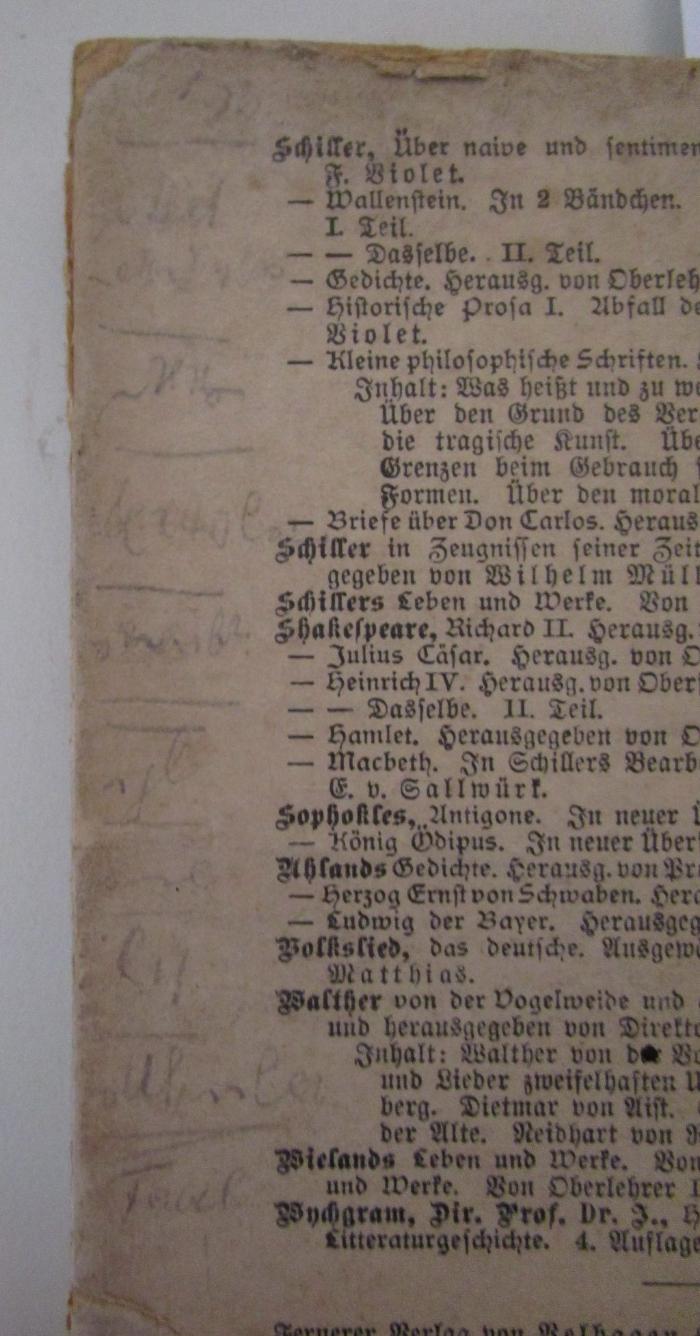 Schiller, Über naive und sentimen
F. Violet.
— Wallenstein. In 2 Bändchen.
I. Teil.
— — Dasselbe. II. Teil.
— Gedichte. Herausg. von Oberleh
— Historische Prosa I. Abfall de
Violet.
— Kleine philosophische Schriften.
Inhalt: Was heißt und zu we
Über den Grund des Ver
die tragische Kunst. Übe
Grenzen beim Gebrauch
Formen. Über den moral
— Briefe über Don Carlos. Heraus
Schiller in Zeugnissen seiner Zeit
gegeben von Wilhelm Müll
Schillers Leben und Werke. Von
Shakespeare, Richard II. Herausg.
— Julius Cäsar. Herausg. von O
— Heinrich IV. Herausg. von Ober
— — Dasselbe. II. Teil.
— Hamlet. Herausgegeben von O
— Macbeth. In Schillers Bearb
E. v. Sallwürk.
Sophokles, Antigone. In neuer Ü
— König Ödipus. In neuer Über
Uhlands Gedichte. Herausg. von Pr
— Herzog Ernst von Schwaben. Hera
— Ludwig der Bayer. Herausgeg
Volkslied, das deutsche. Ausgewä
Matthias.
Walther von der Vogelweide und
und herausgegeben von Direkto
Inhalt: Walther von der Vo
und Lieder zweifelhaften U
berg. Dietmar von Aist.
der Alte. Neidhart von R
Wielands Leben und Werke. Von
und Werke. Von Oberlehrer
Wychgram, Dir. Prof. Dr. J., H
Litteraturgeschichte. 4. Auflage
Fernerer Verlag von Velhagen